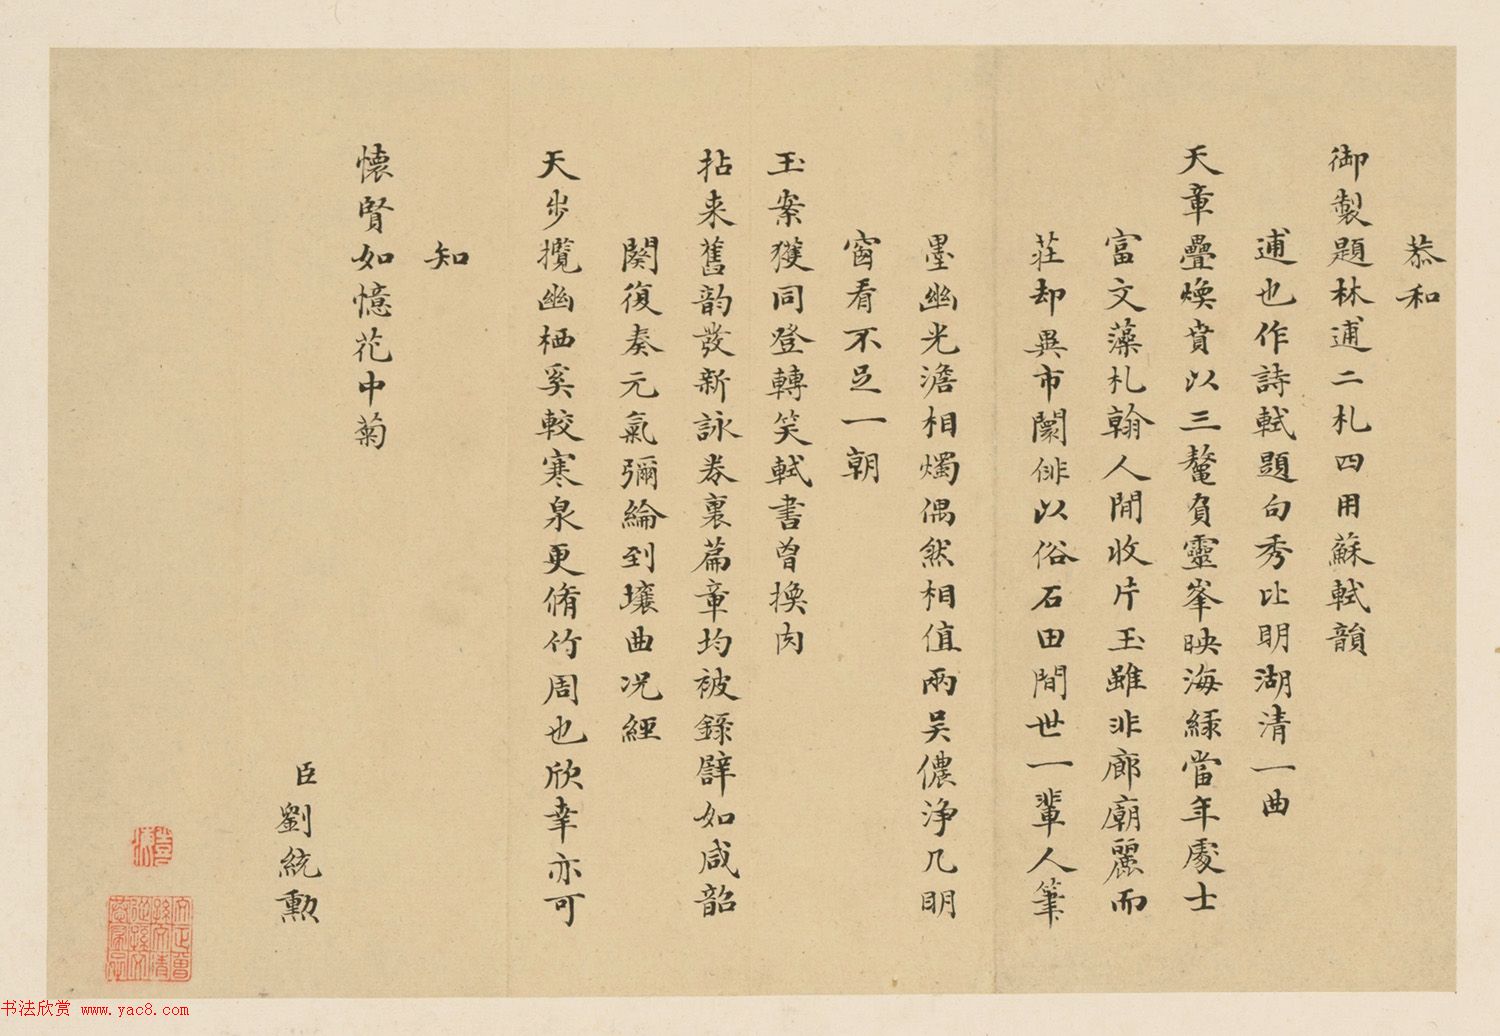 恭和
御製題林逋二札四用蘇軾韻
逋也作詩軾題句秀比明湖清一曲
天章疊煥賁以三鼇負靈峯映海綠當年處士
富文藻札翰人間收片玉雖非廊廟麗而
莊却異市闤俳以俗石田間世一輩人筆
墨幽光澹相燭偶然相值兩吴儂淨几明
窗看不足一朝
玉案獲同登轉笑軾書曾換肉
拈来舊韵發新詠卷裏篇章均被錄譬如咸韶
闋復奏元氣彌綸到壤曲况經
天步攬幽栖奚較寒泉更脩竹周也欣幸亦可
知
懐賢如憶花中菊
臣劉統勲
书法欣赏 www.yac8.com